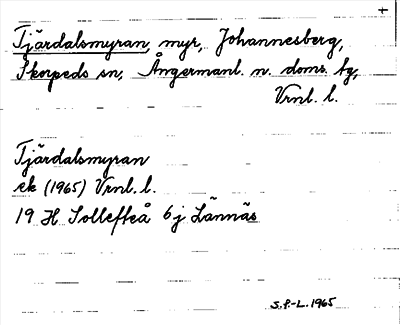 +
Tjärdalsmyran, myr, Johannesberg,
Skorpeds sn, Ångermanl. n. doms. hg,
Vrnl. l.
Tjärdalsmyran
ek (1965) Vrnl. l.
19 H Sollefteå 6 j Lännäs
S.P.-L. 1965